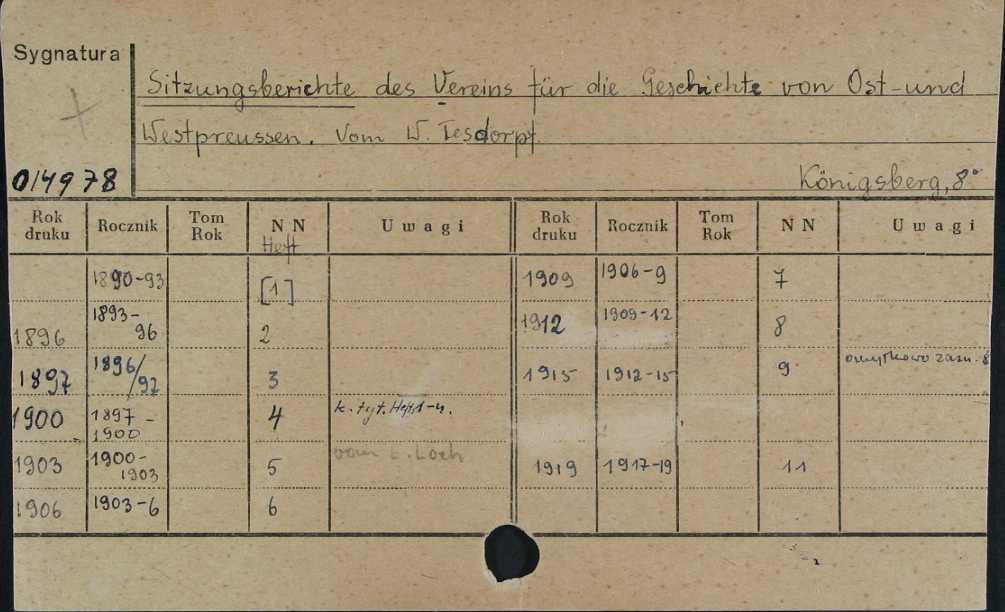 Sygnatura
Sitzungsberichte des Vereins für die Geschichte von Ost-und
Westpreussen. Vom W. Tesdorpf
014978
Königsberg, 8°
Rok druku Rocznik Tom Rok NN Heft Uwagi Rok druku Rocznik Tom Rok NN Uwagi
1890-93 [1] 1909 1906-9 7
1896 1893-96 2 1912 1909-12 8
1897 1896/97 3 1915 1912-15 9 omyłkowo zazn. 8
1900 1897-1900 4 k. tyt. Heft 1-4.
1903 1900-1903 5 vom E. Loch 1919 1917-19 11
1906 1903-6 6